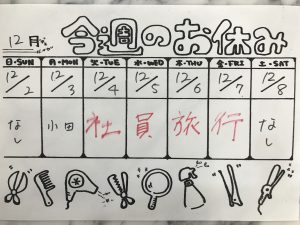 12月 今週のお休み
日・SUN 月・MON 火・TUE 水・WED 木・THU 金・FRI 土・SAT
12/2 12/3 12/4 12/5 12/6 12/7 12/8
なし 小田 社 員 旅 行 なし